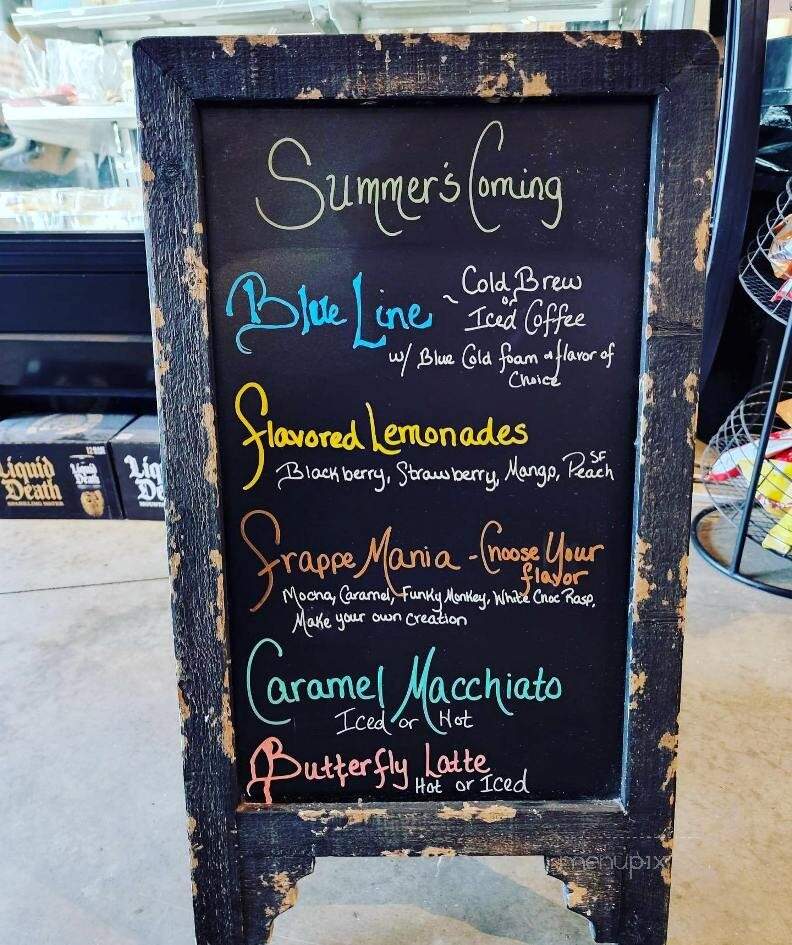 Summer's Coming
Blue Line ~ Cold Brew
or
Iced Coffee
w/ Blue Cold foam + flavor of
Choice
Flavored Lemonades
Blackberry, Strawberry, Mango, SF Peach
Frappe Mania - Choose Your
flavor
Mocha, Caramel, Funky Monkey, White Choc Rasp,
Make your own creation
Caramel Macchiato
Iced or Hot
Butterfly Latte
Hot or Iced
Liquid
Death
SPARKLING WATER
Liquid
Death
Liq
De
menupix